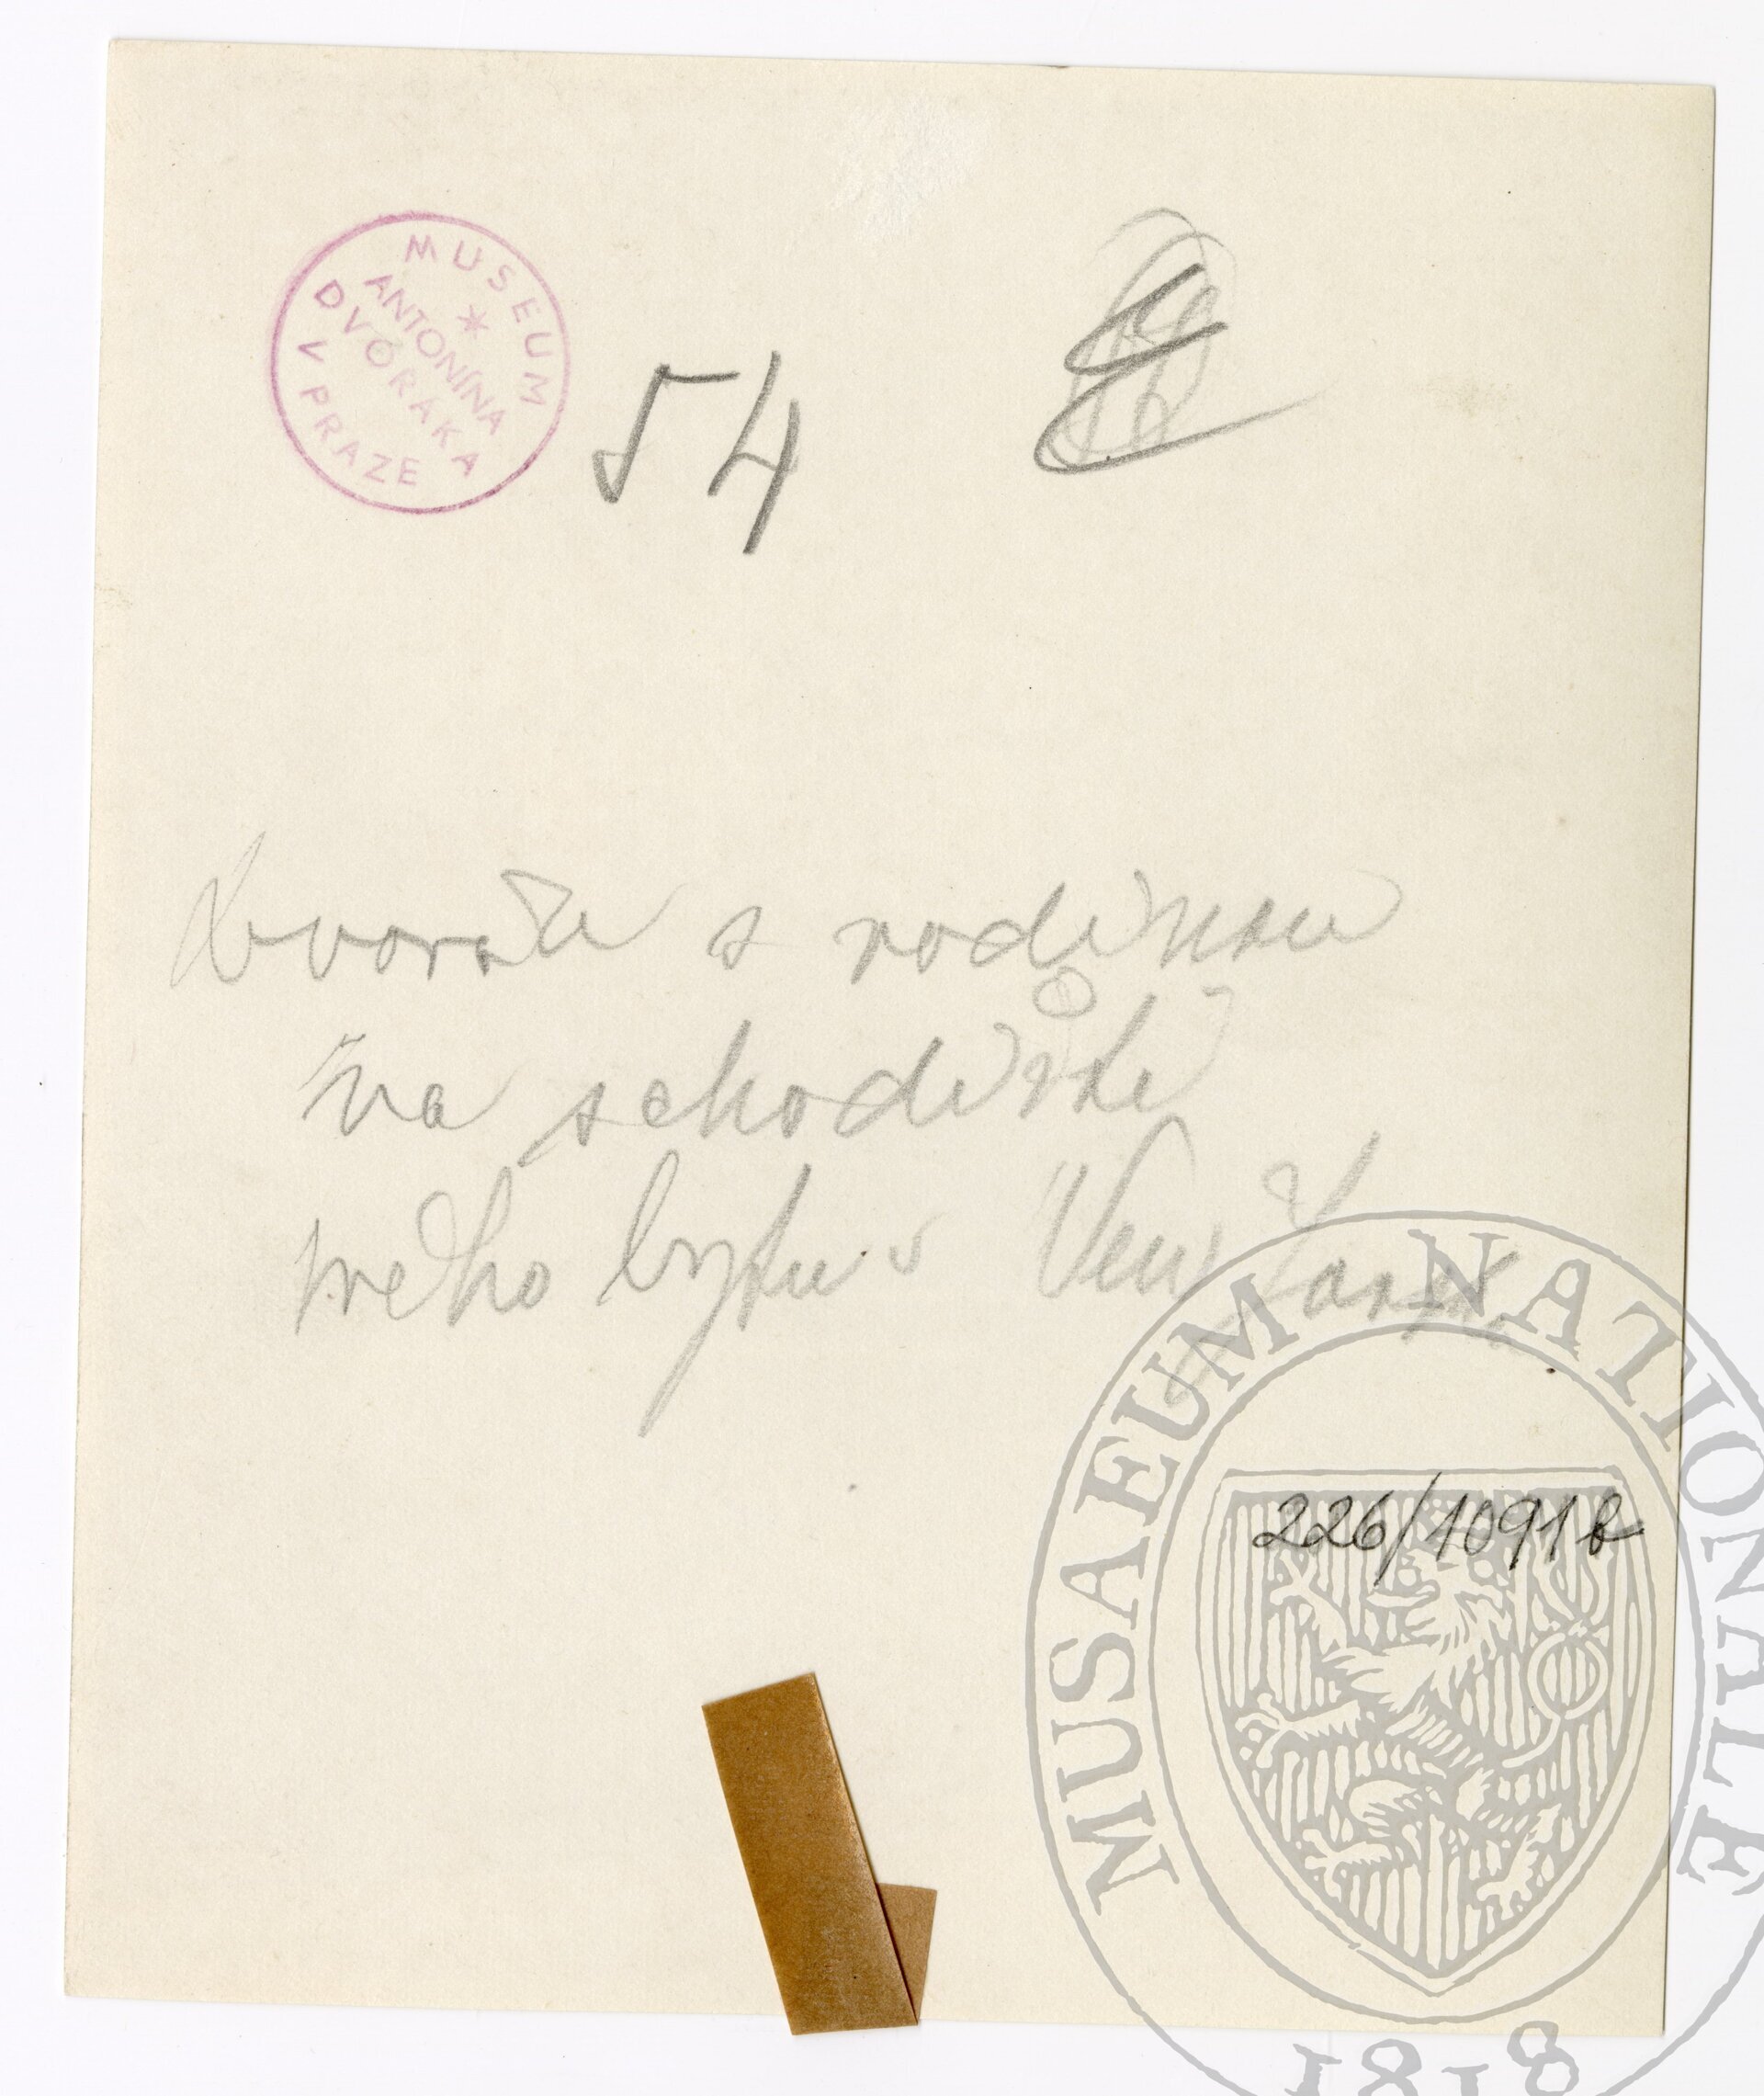 MUSEUM
ANTONÍNA
DVOŘÁKA
V PRAZE
54
Dvořák s rodinou
na schodišti
svého bytu v New Yorku
226/1091b
MUSAEUM NATIONALE
1818